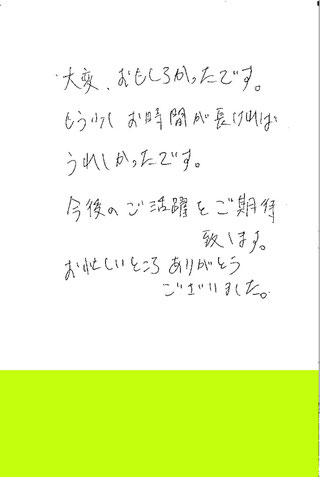 大変、おもしろかったです。
もう少し お時間が長ければ
うれしかったです。
今後のご活躍をご期待
致します。
お忙しいところ ありがとう
ございました。